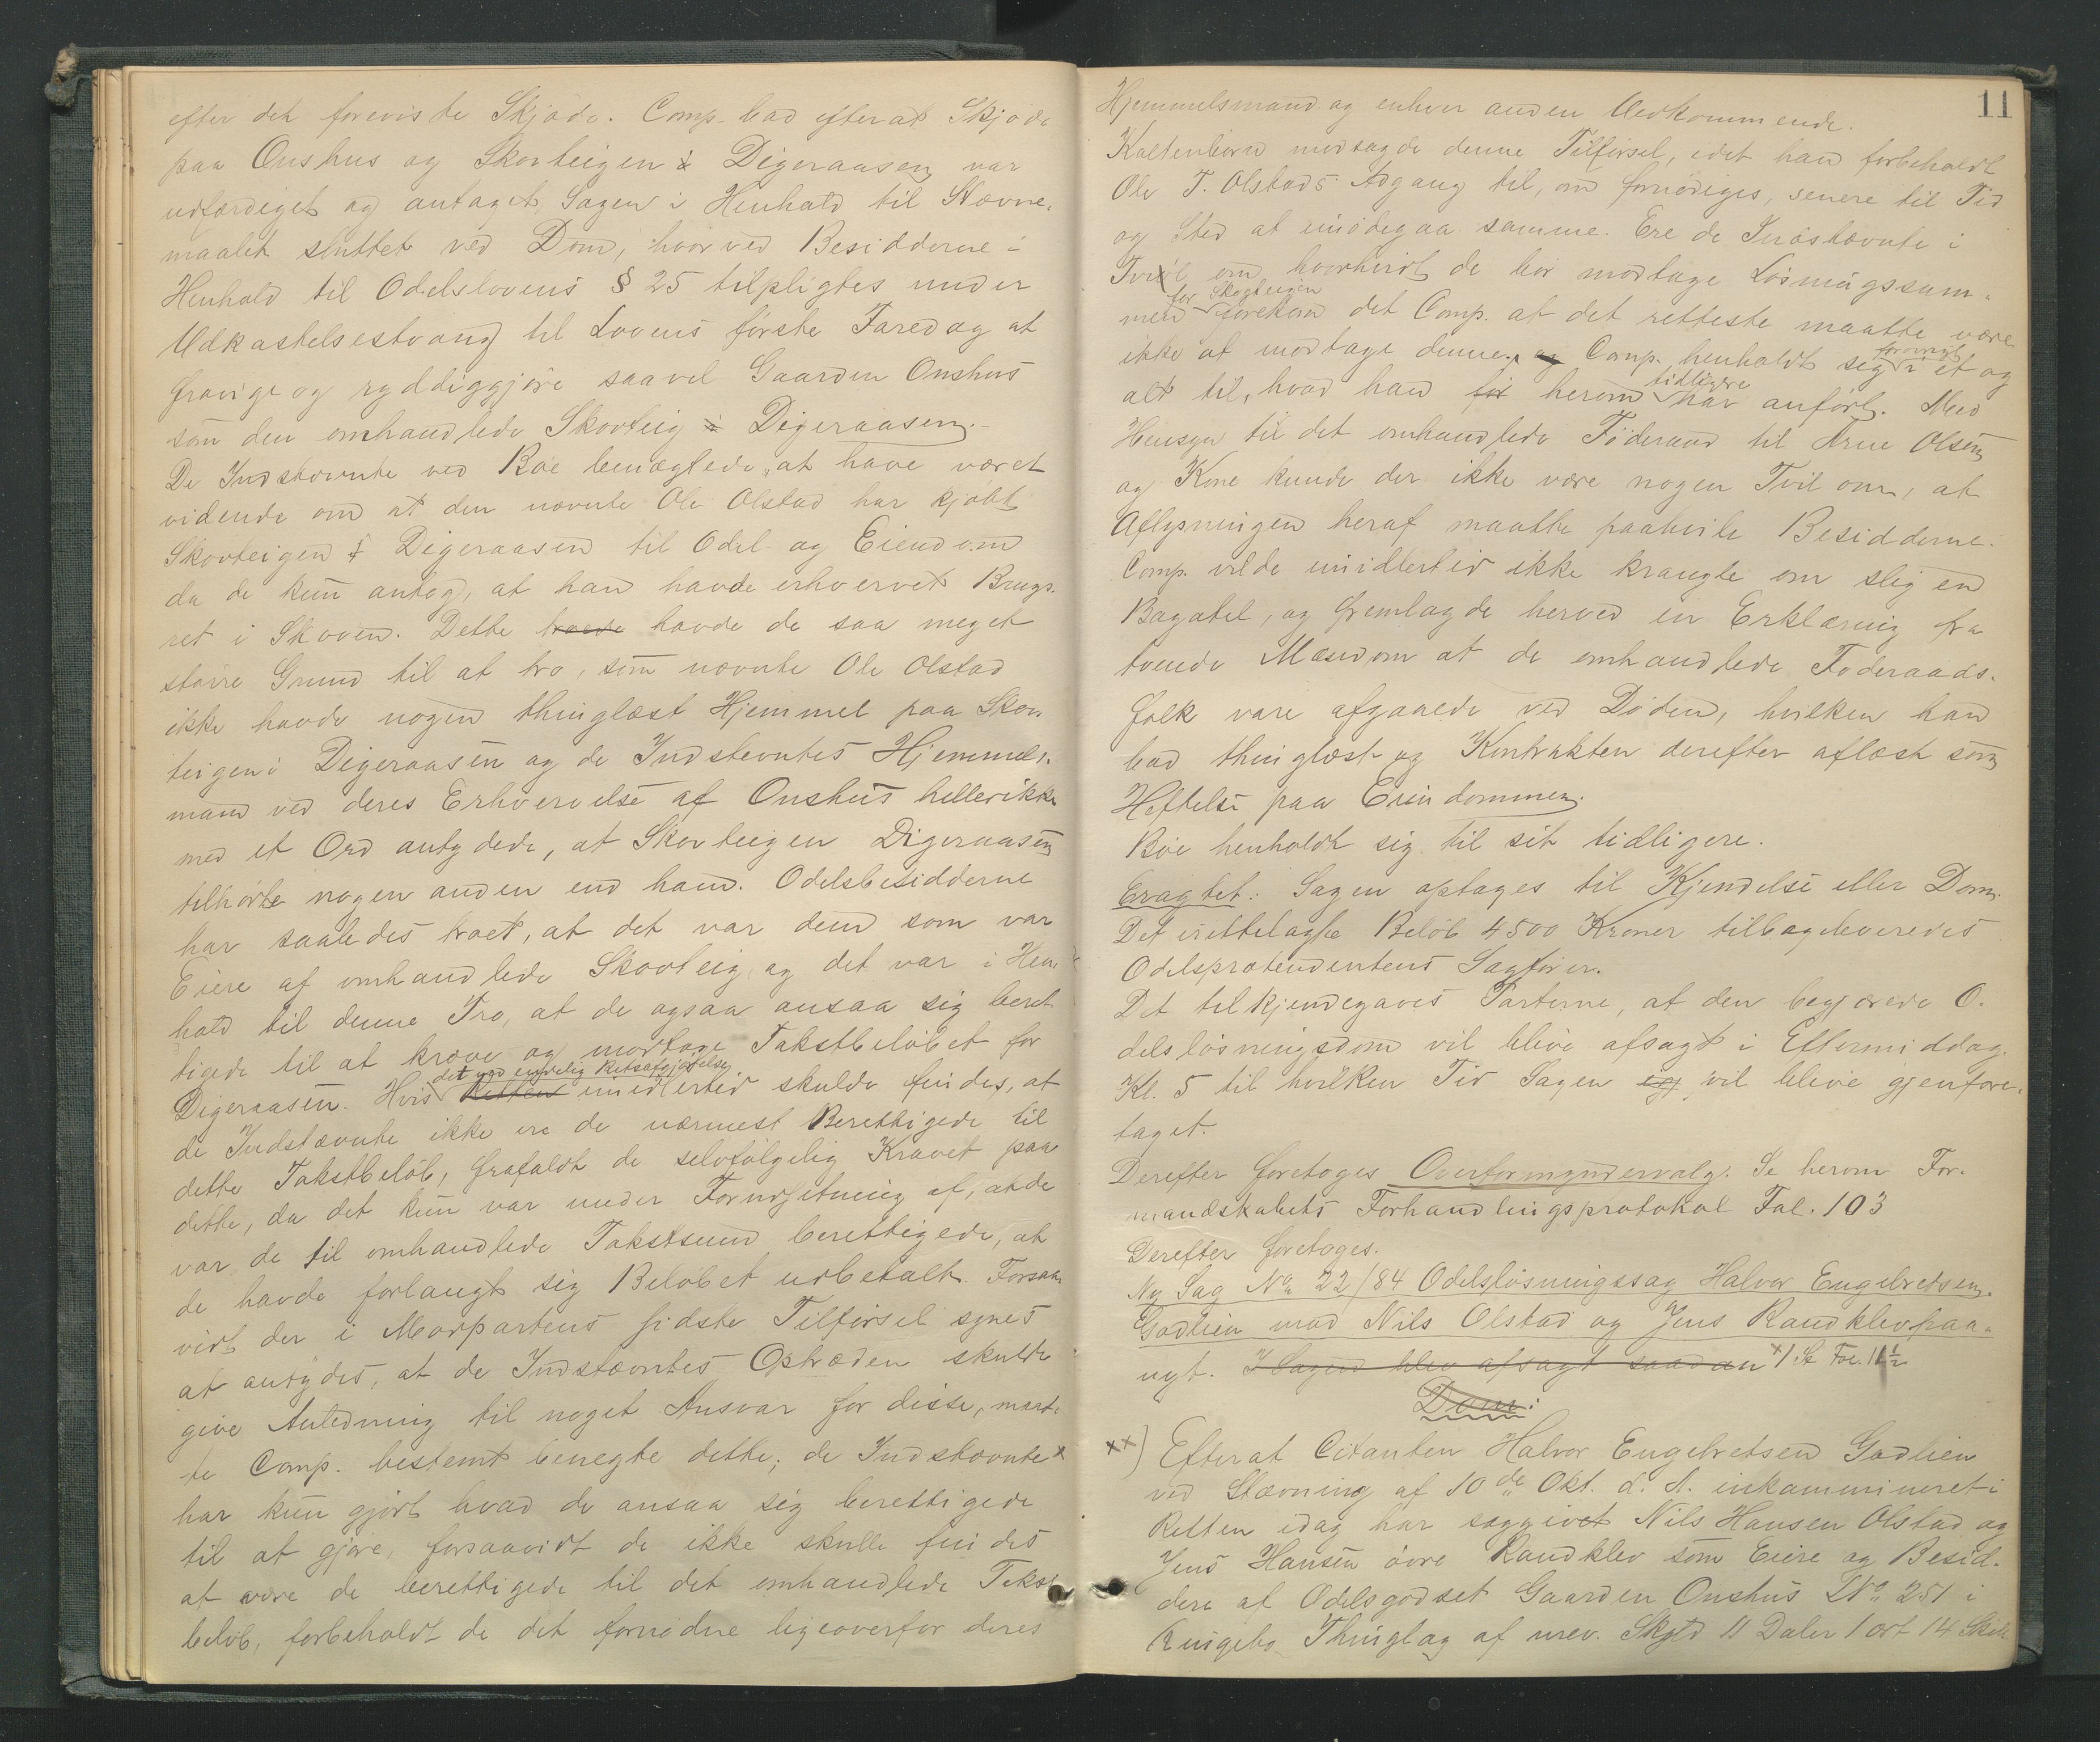 efter det foreviste Skjøde. Comp. bad efterat Skjøde
paa Onshus og Skovteigen i Digeraasen var
udfærdiget og antaget, Sagen i Henhold til Stævne-
maalet sluttet ved Dom, hvorved Besidderne i
Henhold til Odelslovens § 25 tilpligtes under
Udkastelsestvang til Lovens første Faredag at
fravige og ryddiggjøre saavel Gaarden Onshus
som den omhandlede Skovteig i Digeraasen.-
De Indstævnte ved Bøe benægtede, at have været
vidende om at den nævnte Ole Olstad har kjøbt
Skovteigen i Digeraasen til Odel og Eiendom
da de kun antog, at han havde erhvervet Brugs-
ret i Skoven. Dette havde de saa meget
større Grund til at tro, som nævnte Ole Olstad
ikke havde nogen thinglæst Hjemmel paa Skov-
teigen i Digeraasen og de Indstevntes Hjemmels-
mand ved deres Erhvervelse af Onshus heller ikke
med et Ord antydede, at Skovteigen Digeraasen
tilhørte nogen anden end ham. Odelsbesidderne
har saaledes troet, at det var dem som var
Eiere af omhandlede Skovteig, og det var i Hen-
hold til denne Tro, at de ogsaa ansaa sig beret-
tigede til at kræve og modtage Takstbeløbet for
det ved endelig Retsafgjørelse
Digeraasen. Hvis Retten imidlertid skulde findes, at
de Indstævnte ikke ere de nærmest Berettigede til
dette Takstbeløb, frafaldt de selvfølgelig Kravet paa
dette, da det kun var under Forudsetning af, at de
var de til omhandlede Takstsum berettigede, at
de havde forlangt sig Beløbet udbetalt. Forsaa-
vidt der i Modpartens sidste Tilførsel synes
at antydes, at de Indstævntes Optræden skulde
give Anledning til noget Ansvar for disse, maat-
te Comp. bestemt benegte dette; de Indstævnte x
har kun gjort hvad de ansaa sig berettigede
til at gjøre, forsaavidt de ikke skulle findes
at være de berettigede til det omhandlede Takst-
beløb, forbeholdt de det fornødne ligeoverfor deres
11
Hjemmelsmand og enhver anden Vedkommende.
Kaltenborn modsagde denne Tilførsel, idet han forbeholdt
Ole T. Olstads Adgang til, om fornødiges, senere til Tid
og Sted at imødegaa samme. Ere de Indstævnte i
Tvil om, hvorhvidt de bør modtage Løsningssum-
for Skogteigen
men forekom det Comp. at det retteste maatte være
ikke at modtage denne, og Comp. henholdt sig i et og
forøvrigt
alt til, hvad han før herom har anført. Med
tidligere
Hensyn til det omhandlede Føderaad til Arne Olsen
og Kone kunde der ikke være nogen Tvil om, at
Aflysningen heraf maatte paahvile Besidderne.
Comp. vilde imidlertid ikke krangle om slig en
Bagatel, og fremlagde herved en Erklæring fra
tvende Mænd om at de omhandlede Føderaads-
folk vare afgaaede ved Døden, hvilken han
bad thinglæst og Kontrakten derefter aflæst som
Heftelse paa Eiendommen.
Bøe henholdt sig til sit tidligere.
Eragtet: Sagen optages til Kjendelse eller Dom.
Det irettelagte Beløb 4500 Kroner tilbageleveredes
Odelsprætendentens Sagfører.
Det tilkjendegaves Parterne, at den begjærede O-
delsløsningsdom vil blive afsagt i Eftermiddag
Kl. 5 til hvilken Tid Sagen og vil blive gjenfore-
taget.
Derefter foretoges Overformyndervalg. Se herom For-
mandskabets Forhandlingsprotokol Fol. 103
Derefter foretoges.
Ny Sag No 22/84 Odelsløsningssag Halvor Engebretsen
Godlien mod Nils Olstad og Jens Randklev paa-
nyt. I Sagen blev afsagt saadan x) Se Fol. 11½
Dom:
xx) Efterat Citanten Halvor Engebretsen Godlien
ved Stævning af 10de Okt. d. A. inkammineret i
Retten idag har saggivet Nils Hansen Olstad og
Jens Hansen øvre Randklev som Eiere og Besid-
dere af Odelsgodset Gaarden Onshus LNo 251 i
Ringebo Thinglag af urev. Skyld 11 Daler 1 ort 14 Skill